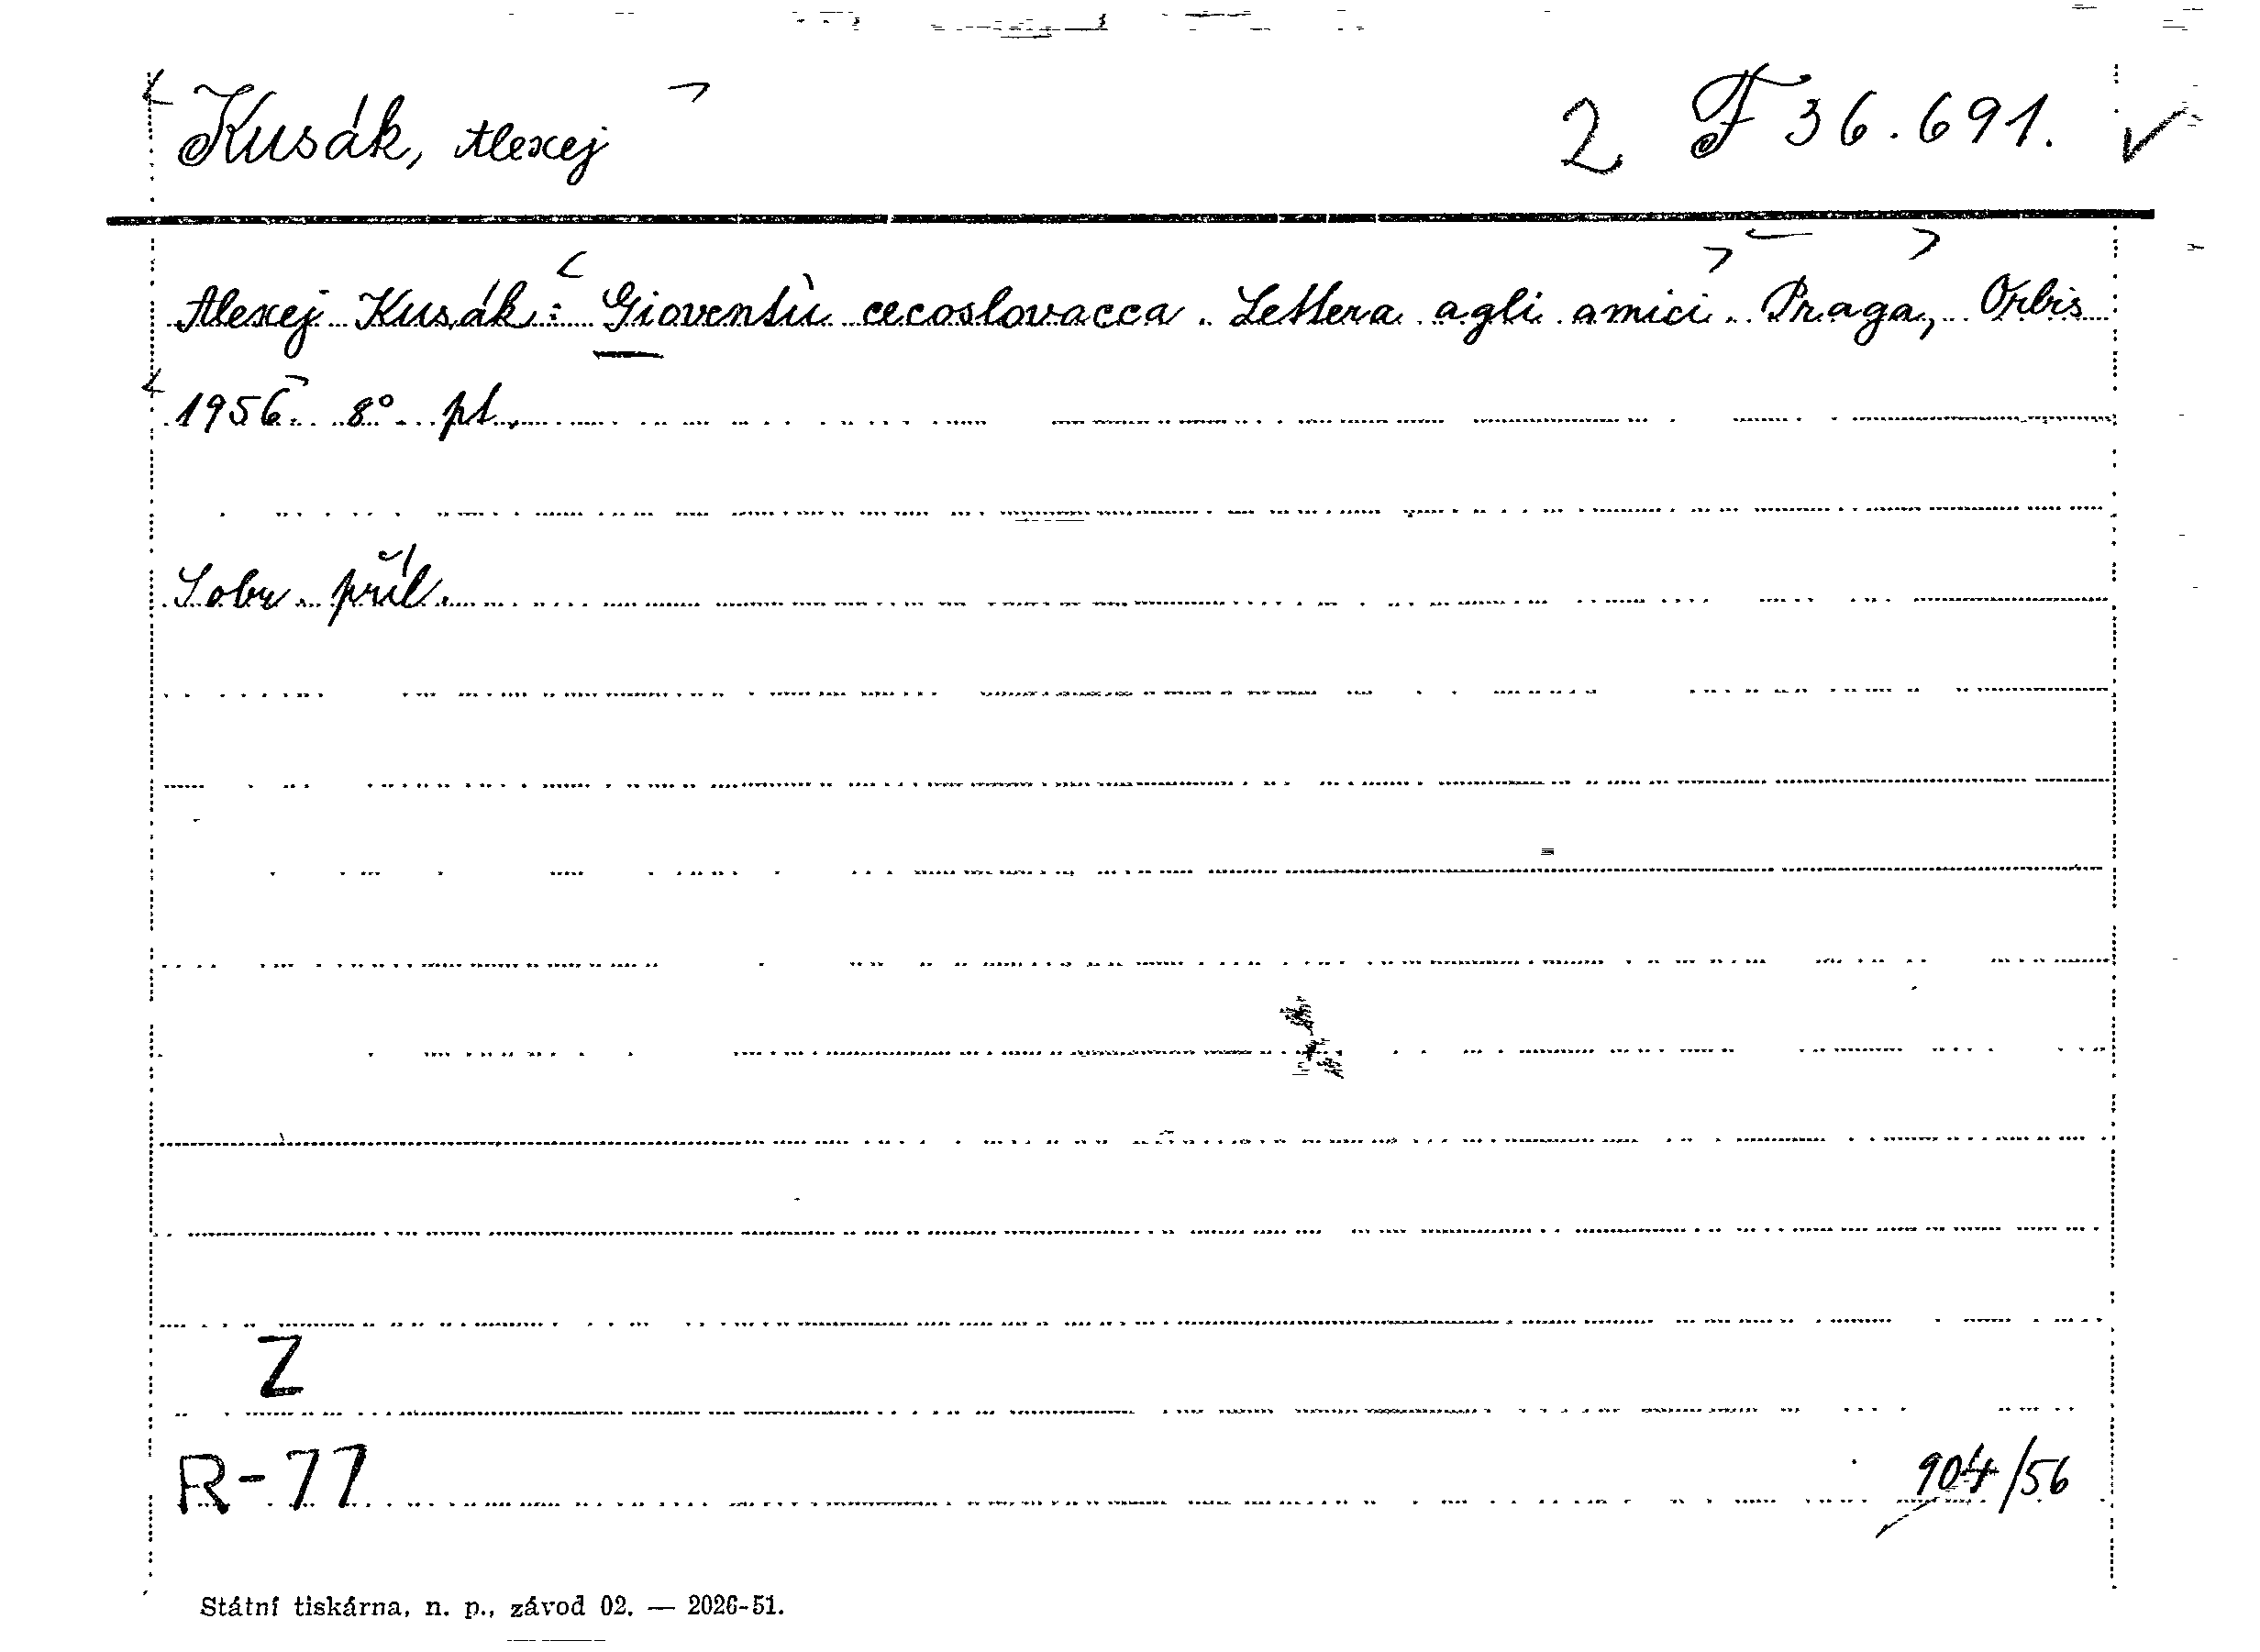 Kusák, Alexej 2 F 36.691.
Alexej Kusák: Gioventù cecoslovacca. Lettera agli amici. Praga, Orbis
1956. 8° pt.
S obr. příl.
Z
R-77
904/56
Státní tiskárna, n. p., závod 02. — 2026-51.